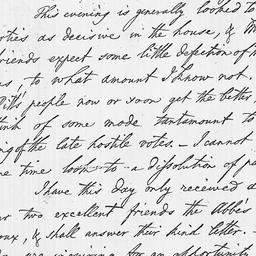 This evening is generally looked to
rties as decisive in the house, & M
riends expect some little defection of m
as to what amount I know not.
Pitt's people now or soon get the better
think of some mode tantamount to
ng of the late hostile notes. — I cannot
me time look to a dissolution of pa
I have this day only received a
ur two excellent friends the Abbés
onx, & shall answer their kind letter. —
are inquiring for an opportunity